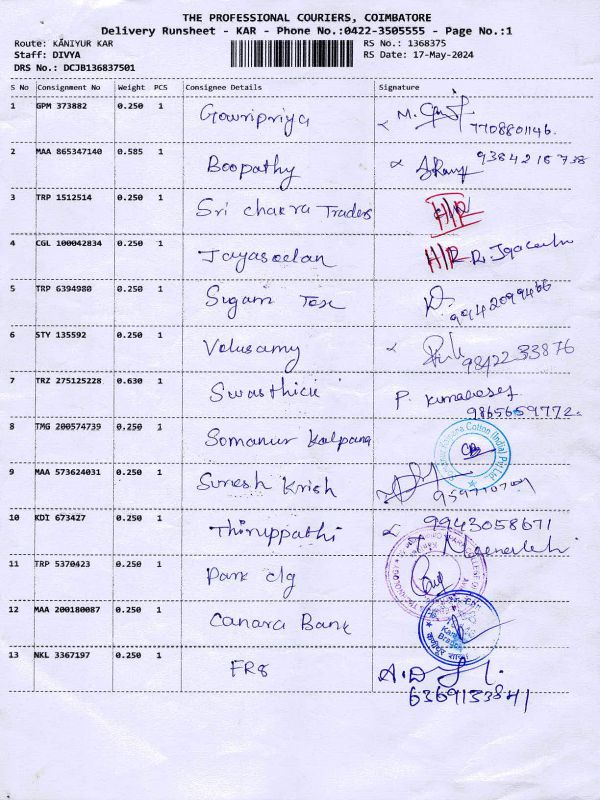 THE PROFESSIONAL COURIERS, COIMBATORE
Delivery Runsheet - KAR - Phone No.:0422-3505555 - Page No.:1
Route: KANIYUR KAR RS No.: 1368375
Staff: DIVYA RS Date: 17-May-2024
DRS No.: DCJB136837501
S No Consignment No Weight PCS Consignee Details Signature
1 GPM 373882 0.250 1 Gowripriya M.
7708801146.
2 MAA 865347140 0.585 1 Boopathy 9384218738
3 TRP 1512514 0.250 1 Sri chakra Traders H/R
4 CGL 100042834 0.250 1 Jayaseelan H/R R.
5 TRP 6394980 0.250 1 Sugam Tex
9942099466
6 STY 135592 0.250 1 Velusamy
9842233876
7 TRZ 275125228 0.630 1 P.
9865659772.
8 TMG 200574739 0.250 1 Somanur Kalpana
Kalpana Cotton (India) Pvt. Ltd.
9 MAA 573624031 0.250 1 Suresh Krish
10 KDI 673427 0.250 1 Thiruppathi 9943058671
T.
11 TRP 5370423 0.250 1 Park clg
12 MAA 200180087 0.250 1 Canara Bank
13 NKL 3367197 0.250 1 FR8 A.D
6369133841